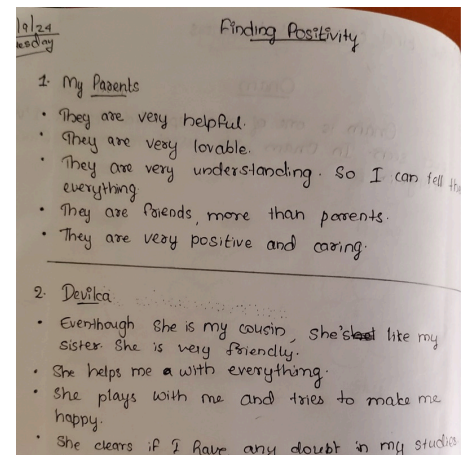 19/24
esday
Finding Positivity
1. My Parents
• They are very helpful.
• They are very lovable.
• They are very understanding. So I can tell
everything.
• They are friends, more than parents.
• They are very positive and caring.
2. Devilca
• Eventhough she is my cousin, she's like my
sister. She is very friendly.
• She helps me with everything.
• She plays with me and tries to make me
happy.
• She clears if I have any doubt in my studies